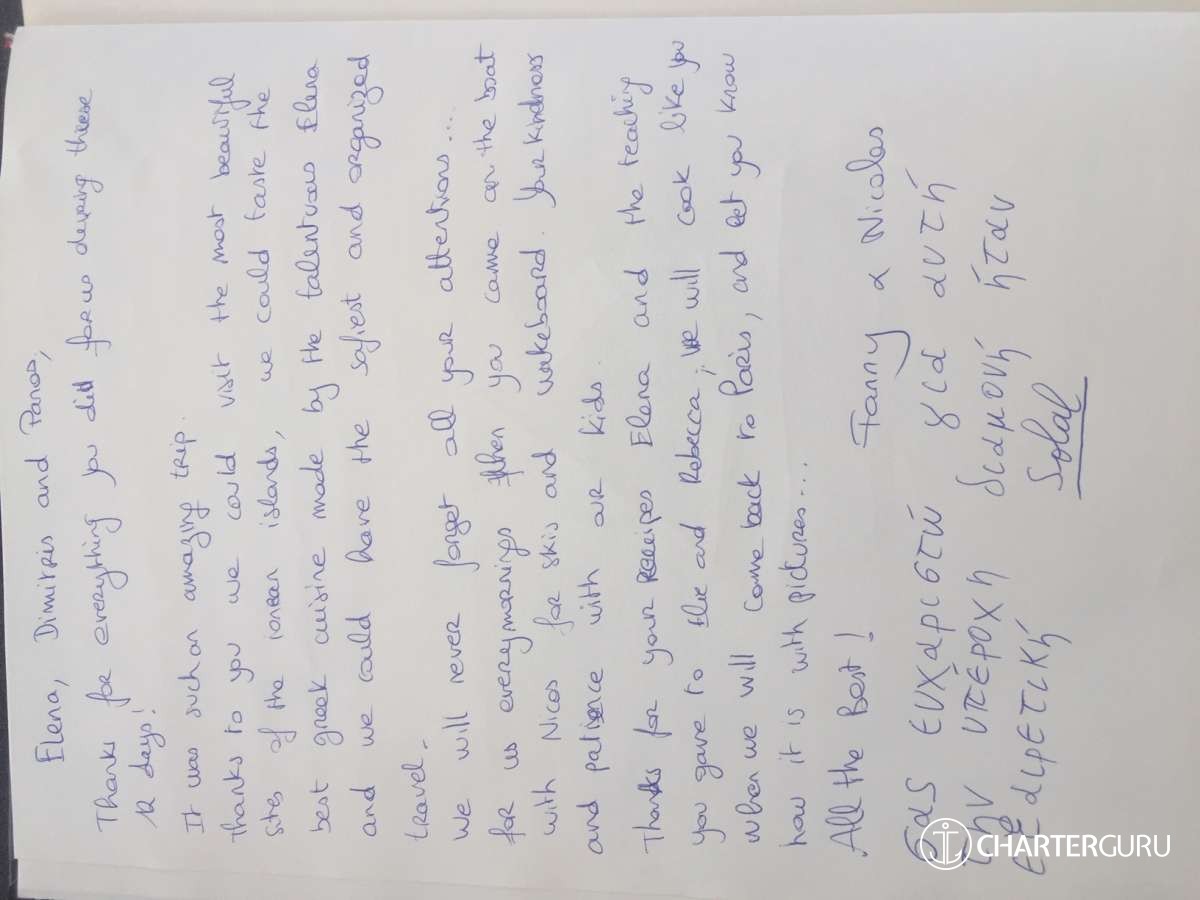 Elena, Dimitris and Panos,
Thanks for everything you did for us during theese
12 days!
It was such an amazing trip.
thanks to you we could visit the most beautiful
sites of the ionean islands, we could taste the
best greek cuisine made by the talentuous Elena
and we could have the safiest and organized
travel.
We will never forget all your attentions....
for us everymornings when you came on the boat
with Nicos for skis and wakeboard. Your kindness
and patience with our kids.
Thanks for your receipes Elena and the teaching
you gave to and Rebecca; we will cook like you
when we will come back to Paris, and let you know
how it is with pictures...
All the Best!
Fanny & Nicolas
Σας ευχαριστώ για αυτή
την υπέροχη διαμονή ήταν
εξαιρετική
Solal
CHARTERGURU